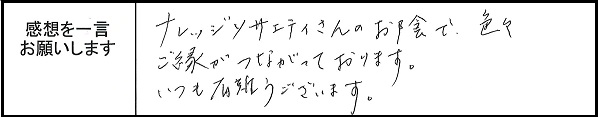 感想を一言
お願いします
ナレッジソサエティさんのお陰で、色々
ご縁がつながっております。
いつも有難うございます。